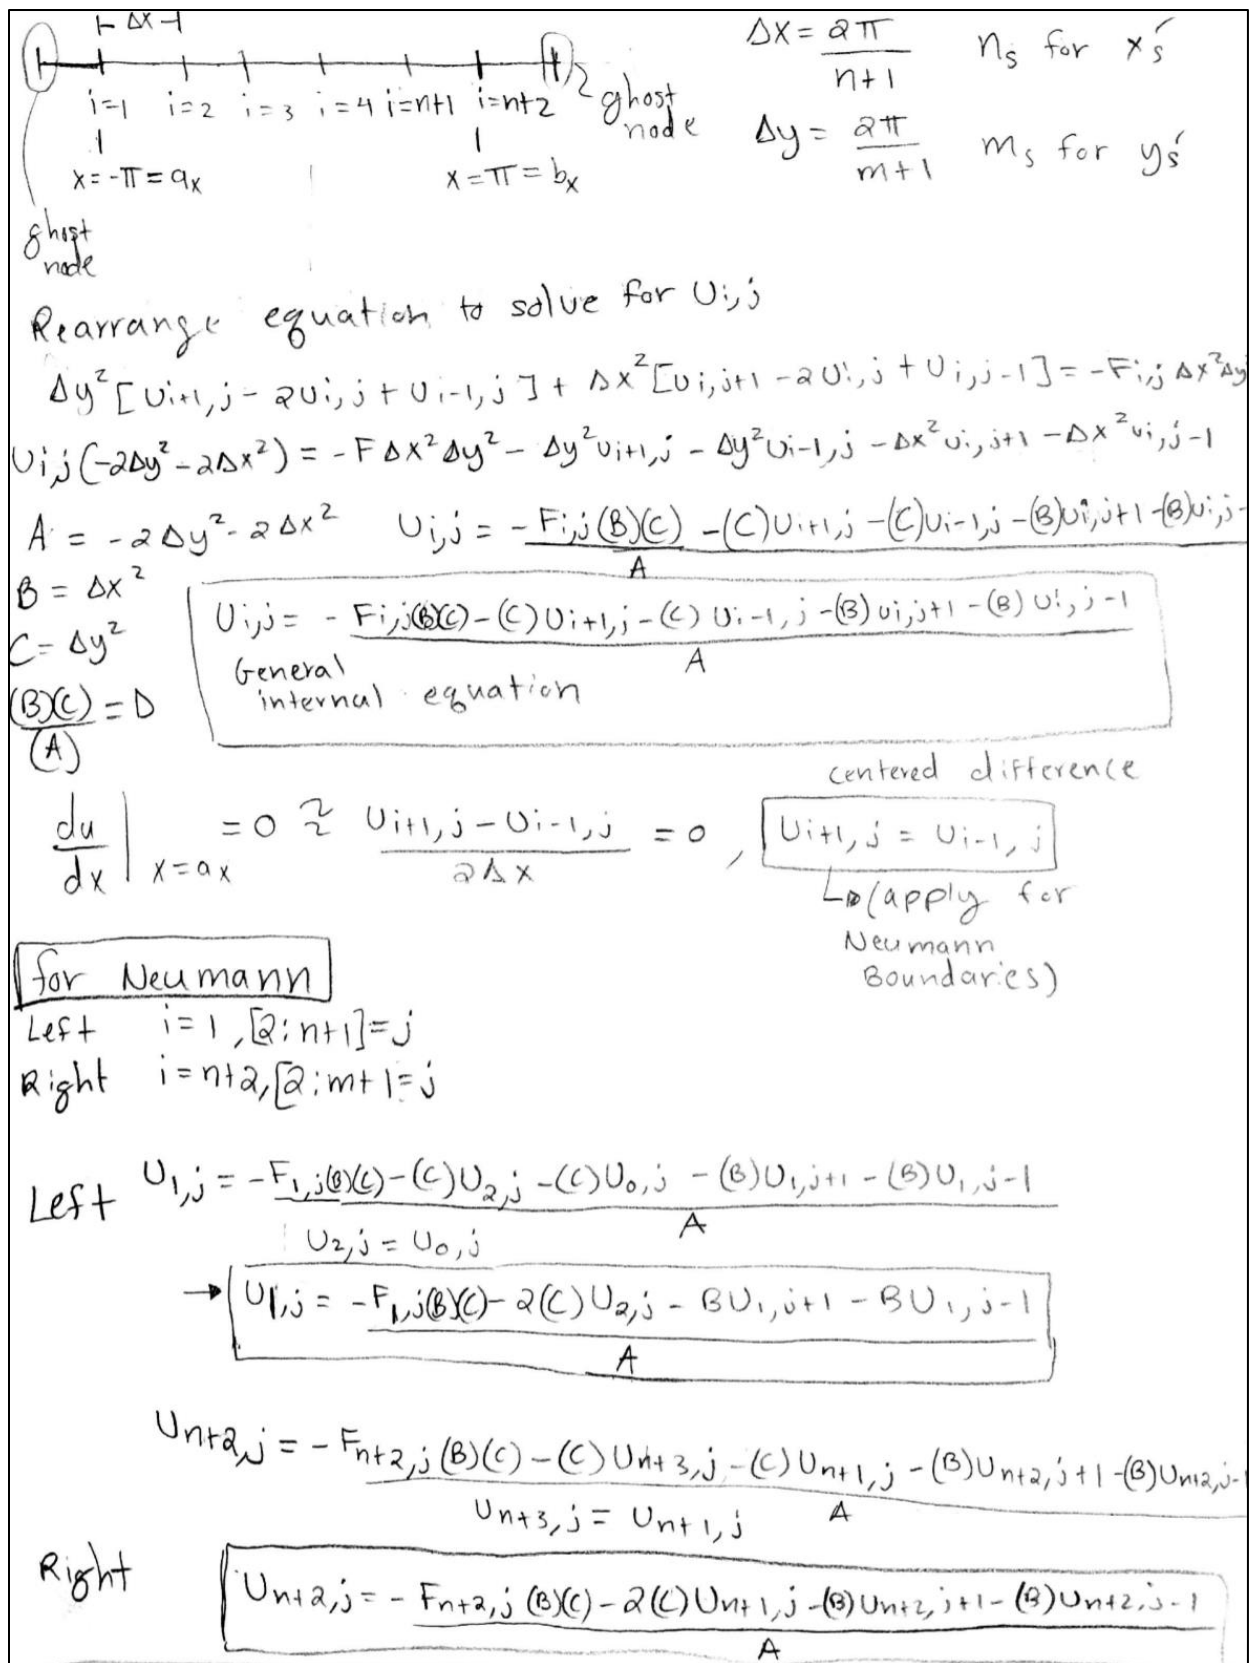 ⊢ Δx ⊣
i=1 i=2 i=3 i=4 i=n+1 i=n+2
ghost node
x=-π=ax
x=π=bx
ghost node
Δx = 2π/(n+1) ns for x's
Δy = 2π/(m+1) ms for y's
Rearrange equation to solve for Ui,j
Δy²[Ui+1,j - 2Ui,j + Ui-1,j] + Δx²[Ui,j+1 - 2Ui,j + Ui,j-1] = -Fi,j Δx²Δy
Ui,j(-2Δy²-2Δx²) = -FΔx²Δy² - Δy²Ui+1,j - Δy²Ui-1,j - Δx²Ui,j+1 - Δx²Ui,j-1
A = -2Δy²-2Δx² Ui,j = -Fi,j(B)(C) - (C)Ui+1,j - (C)Ui-1,j - (B)Ui,j+1 - (B)Ui,j-
A
B = Δx²
C = Δy²
(B)(C)/(A) = D
Ui,j = - Fi,j(B)(C) - (C)Ui+1,j - (C)Ui-1,j - (B)Ui,j+1 - (B)Ui,j-1
A
General internal equation
centered difference
du/dx | x=ax =0 ≈ Ui+1,j - Ui-1,j / 2Δx = 0, Ui+1,j = Ui-1,j
↳ (apply for
Neumann
Boundaries)
for Neumann
Left i=1, [2:n+1]=j
Right i=n+2, [2:m+1=j
Left U1,j = -F1,j(B)(C) - (C)U2,j - (C)U0,j - (B)U1,j+1 - (B)U1,j-1
A
U2,j = U0,j
→ U1,j = -F1,j(B)(C) - 2(C)U2,j - BU1,j+1 - BU1,j-1
A
Un+2,j = -Fn+2,j(B)(C) - (C)Un+3,j - (C)Un+1,j - (B)Un+2,j+1 - (B)Un+2,j-1
A
Un+3,j = Un+1,j
Right Un+2,j = - Fn+2,j(B)(C) - 2(C)Un+1,j - (B)Un+2,j+1 - (B)Un+2,j-1
A